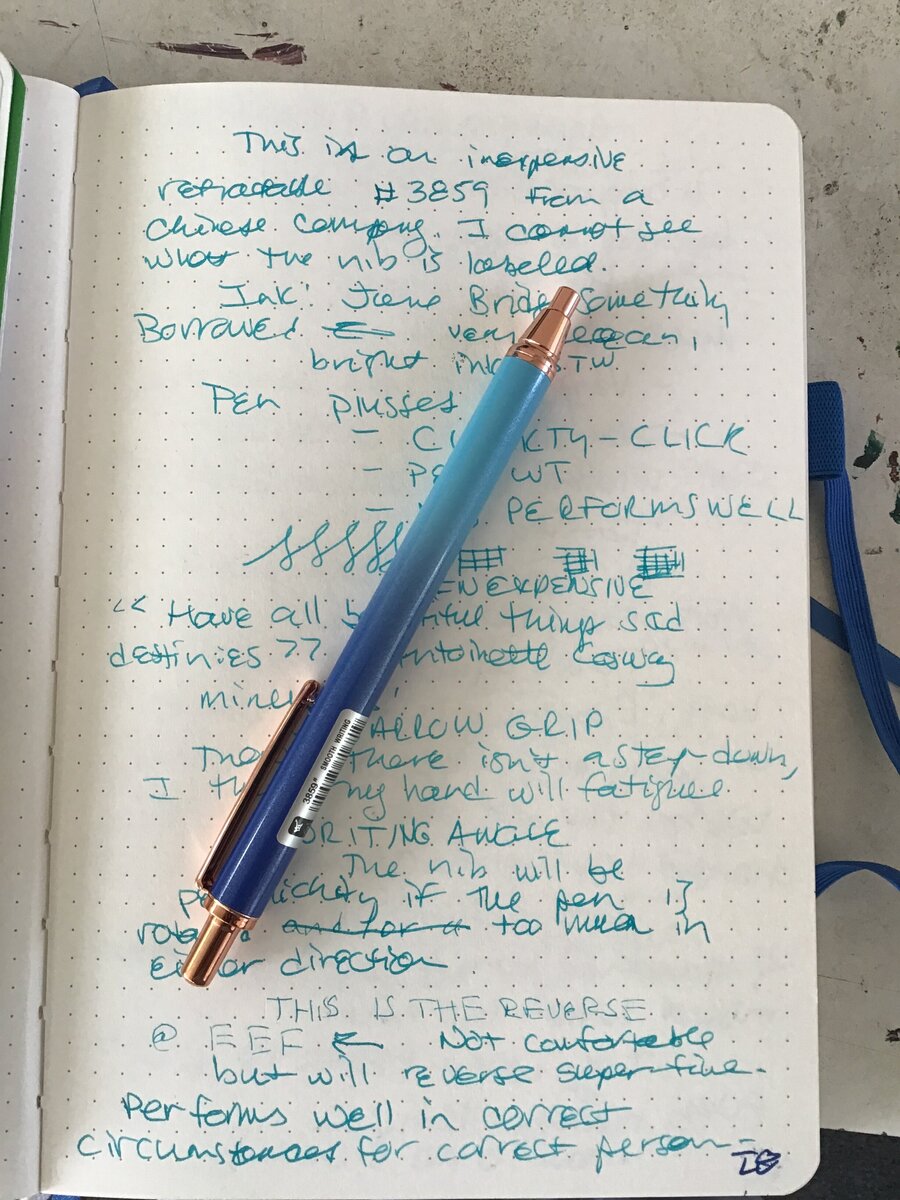 This is an inexpensive
retractable #3859 from a
Chinese company. I cannot see
what the nib is labeled.
Ink: Bride Something
Borrowed very clean,
bright ink BTW
Pen plusses
- CLICK
- WT
- PERFORMS WELL
INEXPENSIVE
"Have all beautiful things sad
destinies?? Antoinette Cosway
NARROW GRIP
there isn't a step-down,
I think my hand will fatigue
WRITING ANGLE
The nib will be
if the pen is
and for a too much in
either direction
THIS IS THE REVERSE
@ EEF ← Not comfortable
but will reverse super-fine.
Performs well in correct
circumstances for correct person-
3859# SMOOTH WRITING